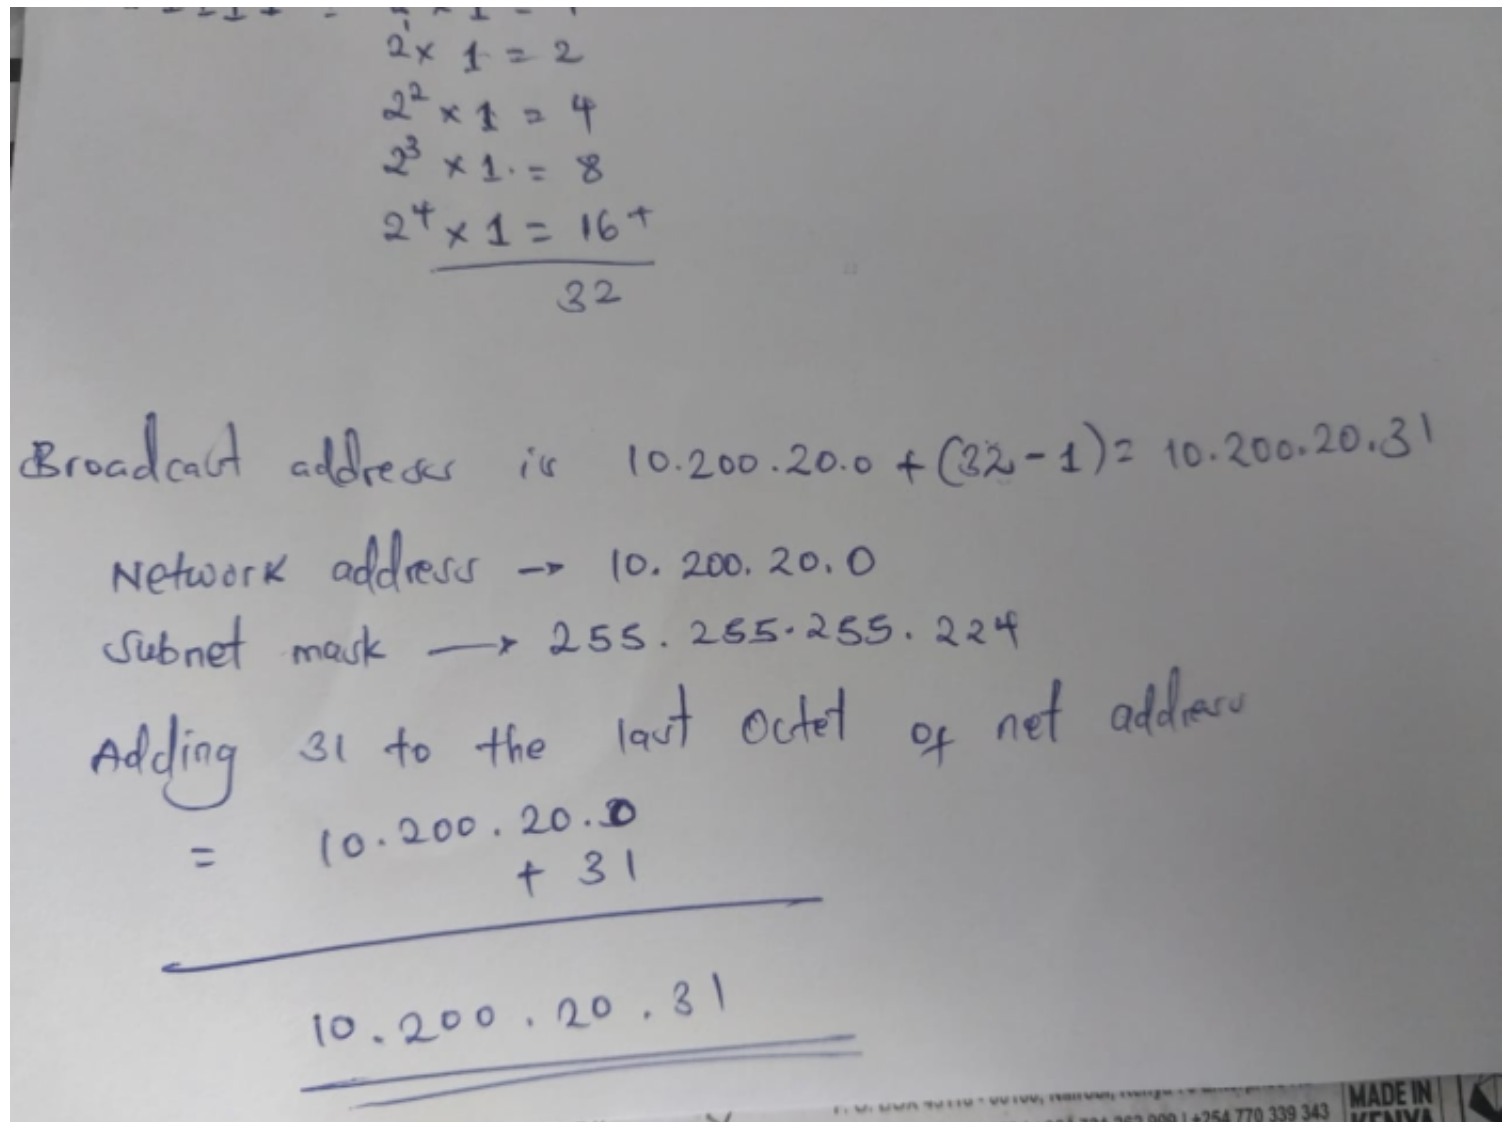 2¹x 1 = 2
2² x 1 = 4
2³ x 1 = 8
2⁴ x 1 = 16 +
32
Broadcast address is 10.200.20.0 + (32-1) = 10.200.20.31
Network address → 10. 200. 20. 0
Subnet mask → 255. 255. 255. 224
Adding 31 to the last octet of net address
= 10. 200. 20. 0
+ 31
10. 200. 20. 31
MADE IN
+254 770 339 343
KENYA